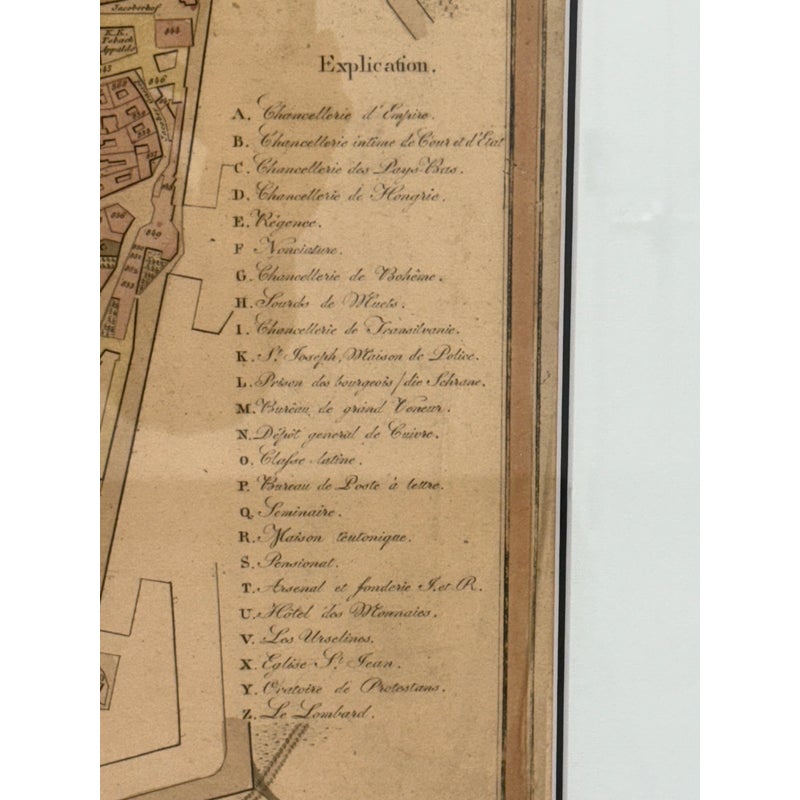 Jacoberhof
K.K.
Taback
Appaldo
844
845
846
849
Explication.
A. Chancellerie d'Empire.
B. Chancellerie intime de Cour et d'Etat
C. Chancellerie des Pays-Bas.
D. Chancellerie de Hongrie.
E. Régence.
F Nonciature.
G. Chancellerie de Bohême.
H. Sourds de Muets.
I. Chancellerie de Transilvanie.
K. St. Joseph, Maison de Police.
L. Prison des bourgeois /die Schrane.
M. Burêau de grand Veneur.
N. Dépôt general de Cuivre.
O. Classe latine.
P. Bureau de Poste à lettre.
Q Seminaire.
R. Maison teutonique.
S. Pensionat.
T. Arsenal et fonderie I. et R.
U. Hôtel des Monnaies.
V. Les Urselines.
X. Eglise St. Jean.
Y. Oratoire de Protestans.
Z. Le Lombard.